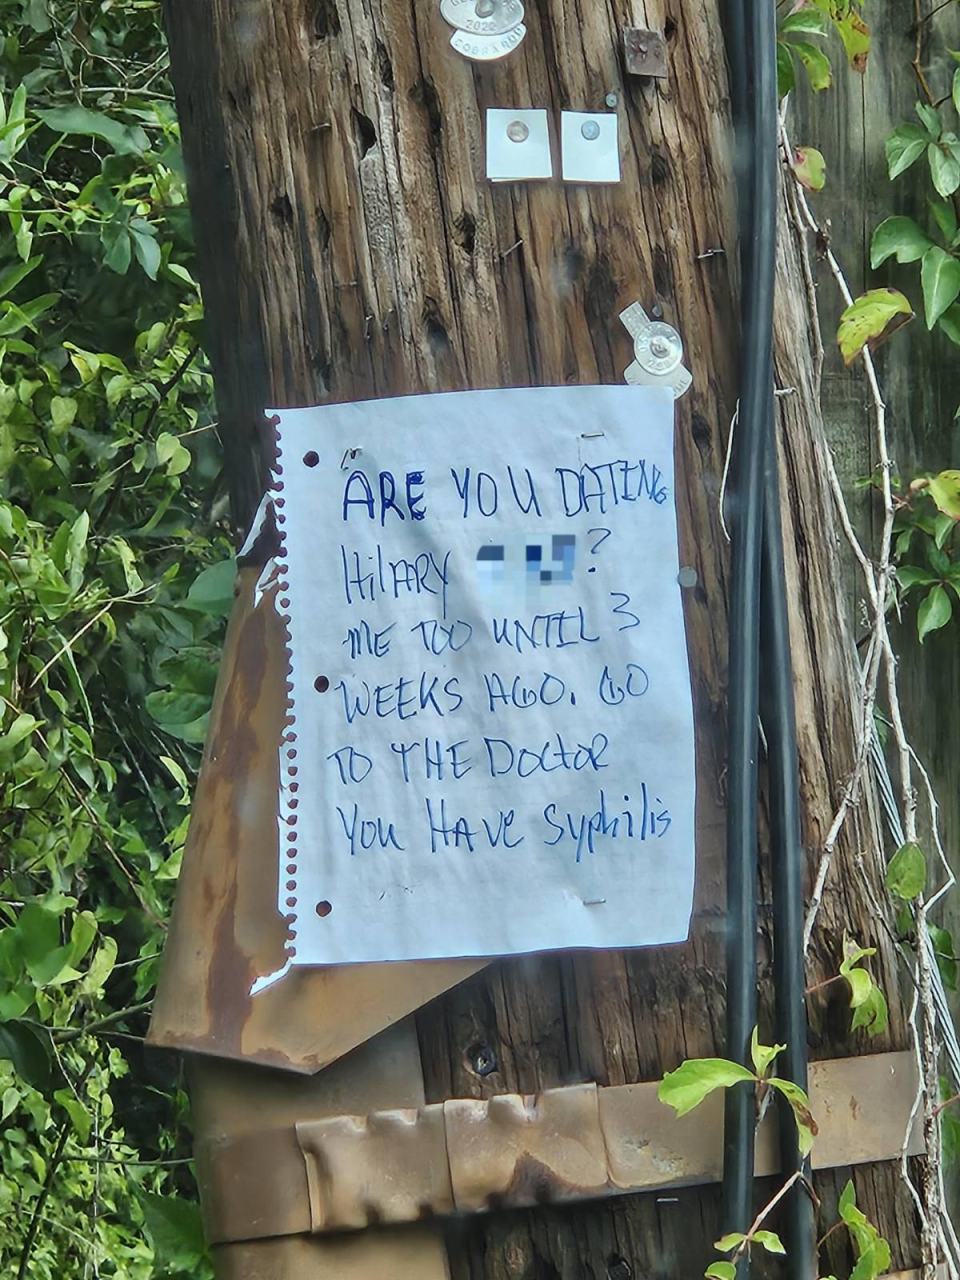 2022
ARE YOU DATING
HilARY ?
ME TOO UNTIL 3
WEEKS AGO. GO
TO THE DOCtOR
YOU HAVE Syphilis